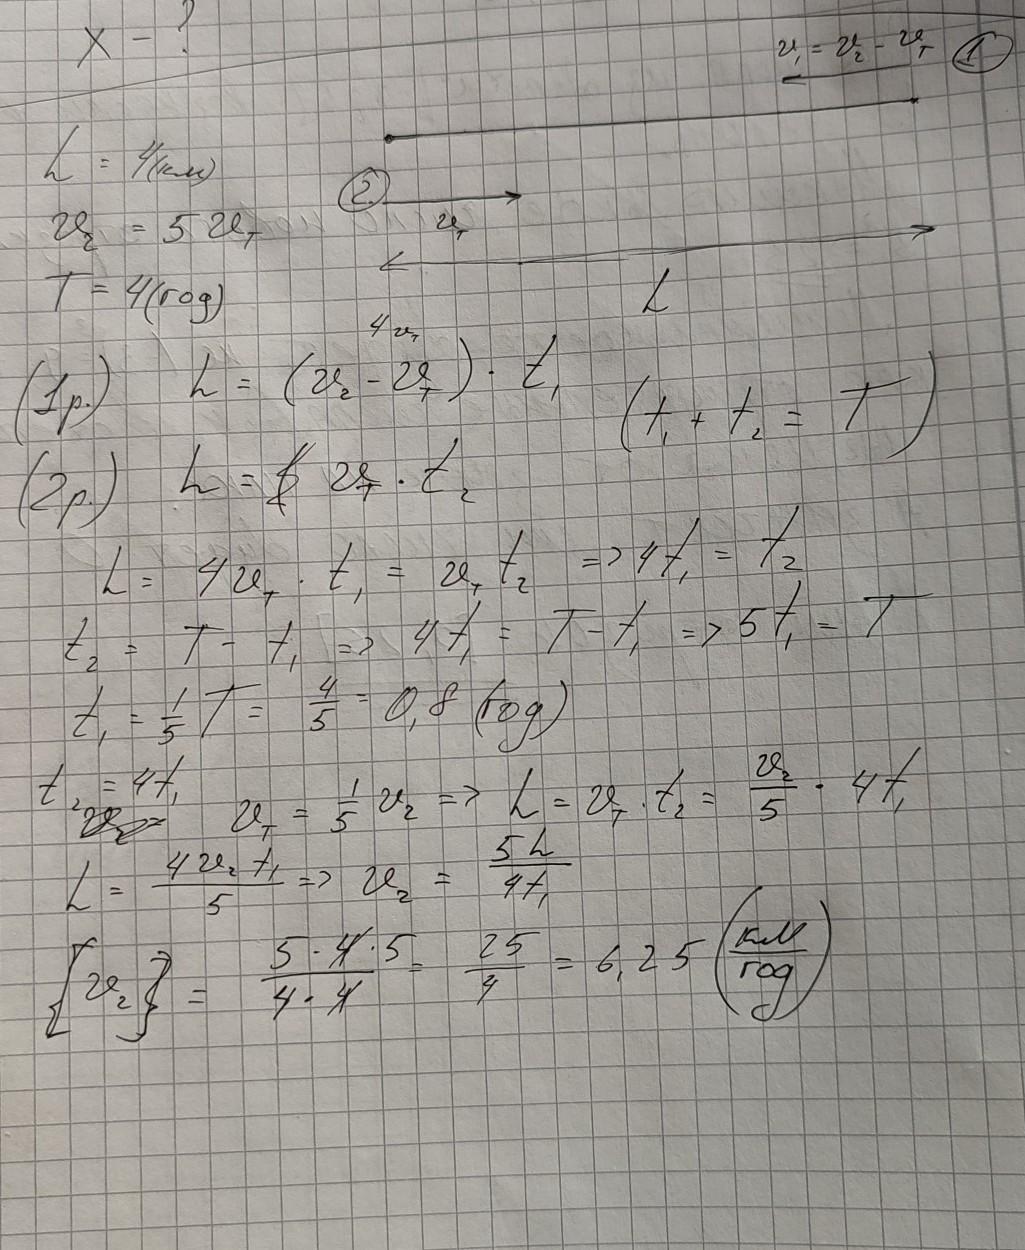 x - ?
υ₁ = υ₂ - υ_T ①
L = 4(км)
υ₂ = 5 υ_T
T = 4(год)
②
υ_T
L
4υ_T
(1р.) L = (υ₂ - υ_T) · t₁
(t₁ + t₂ = T)
(2р.) L = υ_T · t₂
L = 4υ_T · t₁ = υ_T t₂ => 4t₁ = t₂
t₂ = T - t₁ => 4t₁ = T - t₁ => 5t₁ = T
t₁ = 1/5 T = 4/5 = 0,8 (год)
t₂ = 4t₁
υ_T = 1/5 υ₂ => L = υ_T · t₂ = υ₂/5 · 4t₁
L = 4υ₂t₁/5 => υ₂ = 5L/4t₁
{υ₂} = 5·4·5/4·4 = 25/4 = 6,25 (км/год)